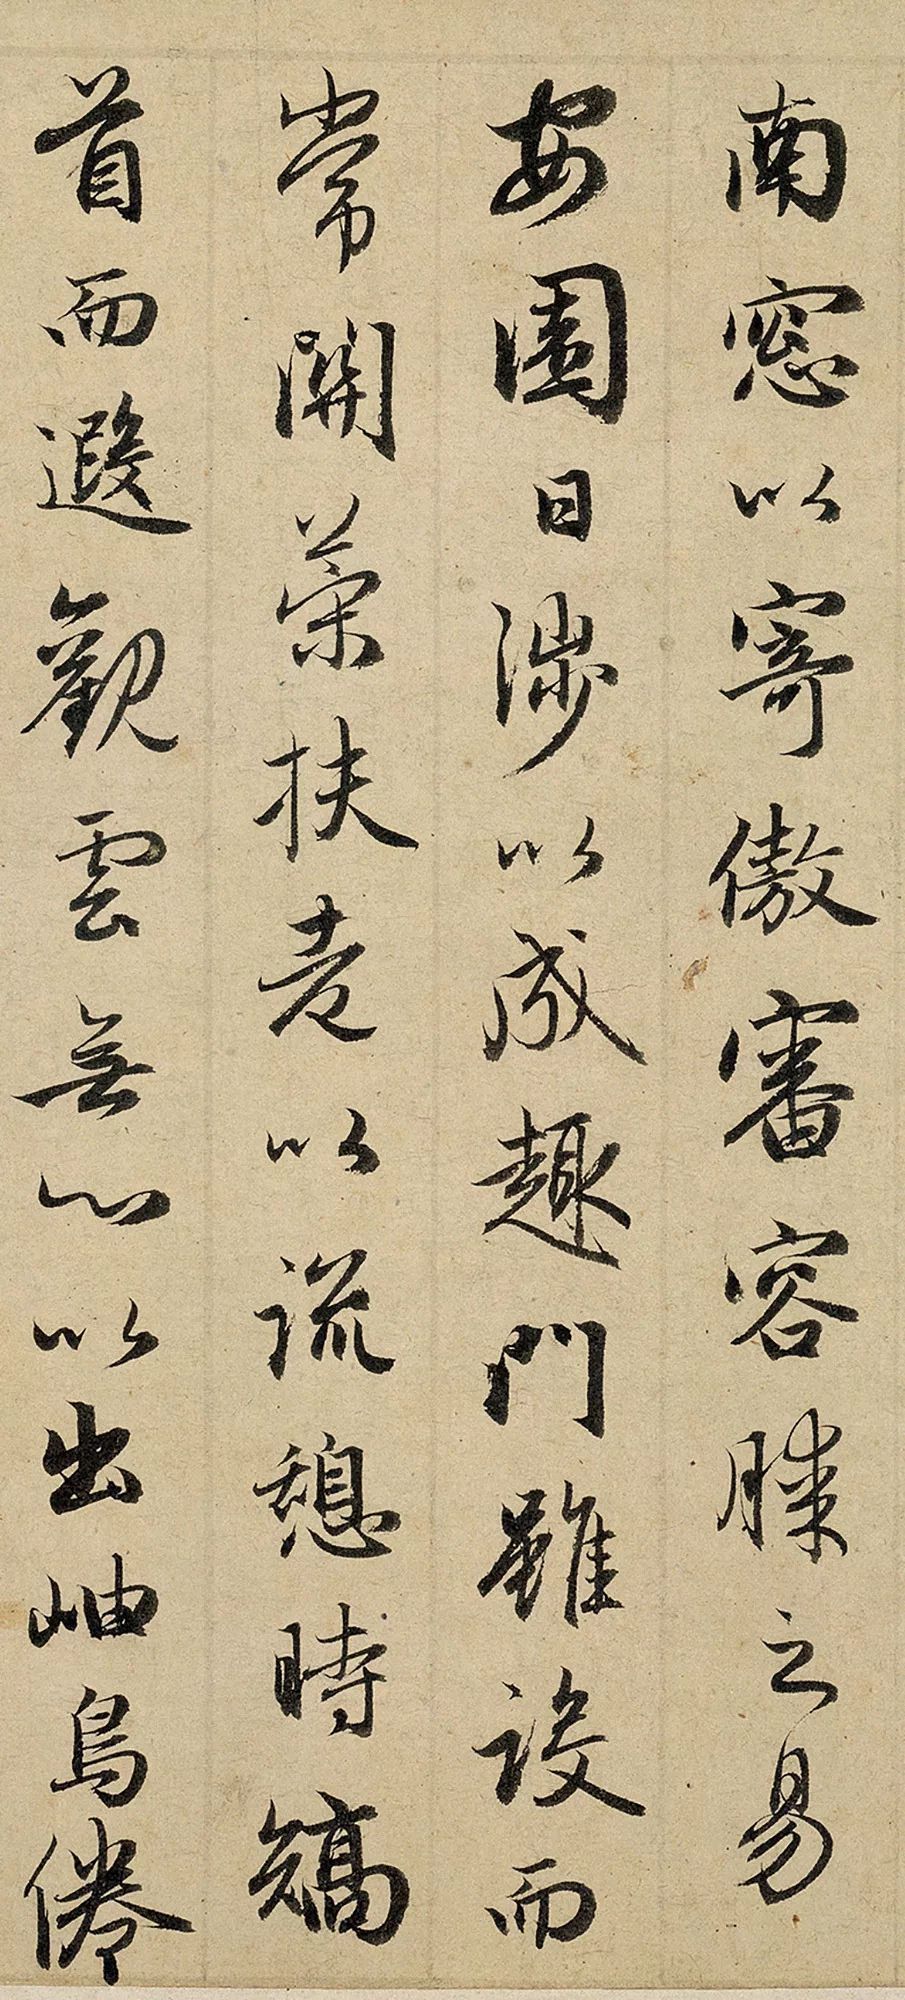 南窓以寄傲審容膝之易
安園日涉以成趣門雖設而
常關策扶老以流憩時矯
首而遐觀雲無心以出岫鳥倦